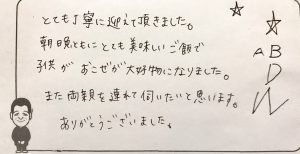 とても丁寧に迎えて頂きました。
朝晩ともにとても美味しいご飯で
子供がおこぜが大好物になりました。
また両親を連れて伺いたいと思います。
ありがとうございました。
AB
D
W